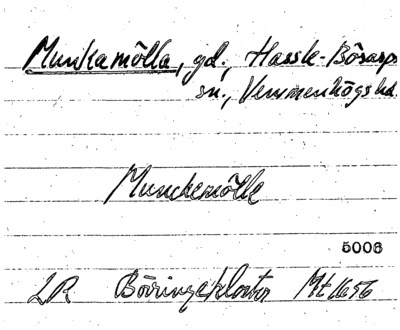 Munkamölla, gd., Hassle-Bösarps
sn., Vemmenhögs hd.
Munckemölle
5006
LR Börringekloster Mt 1656